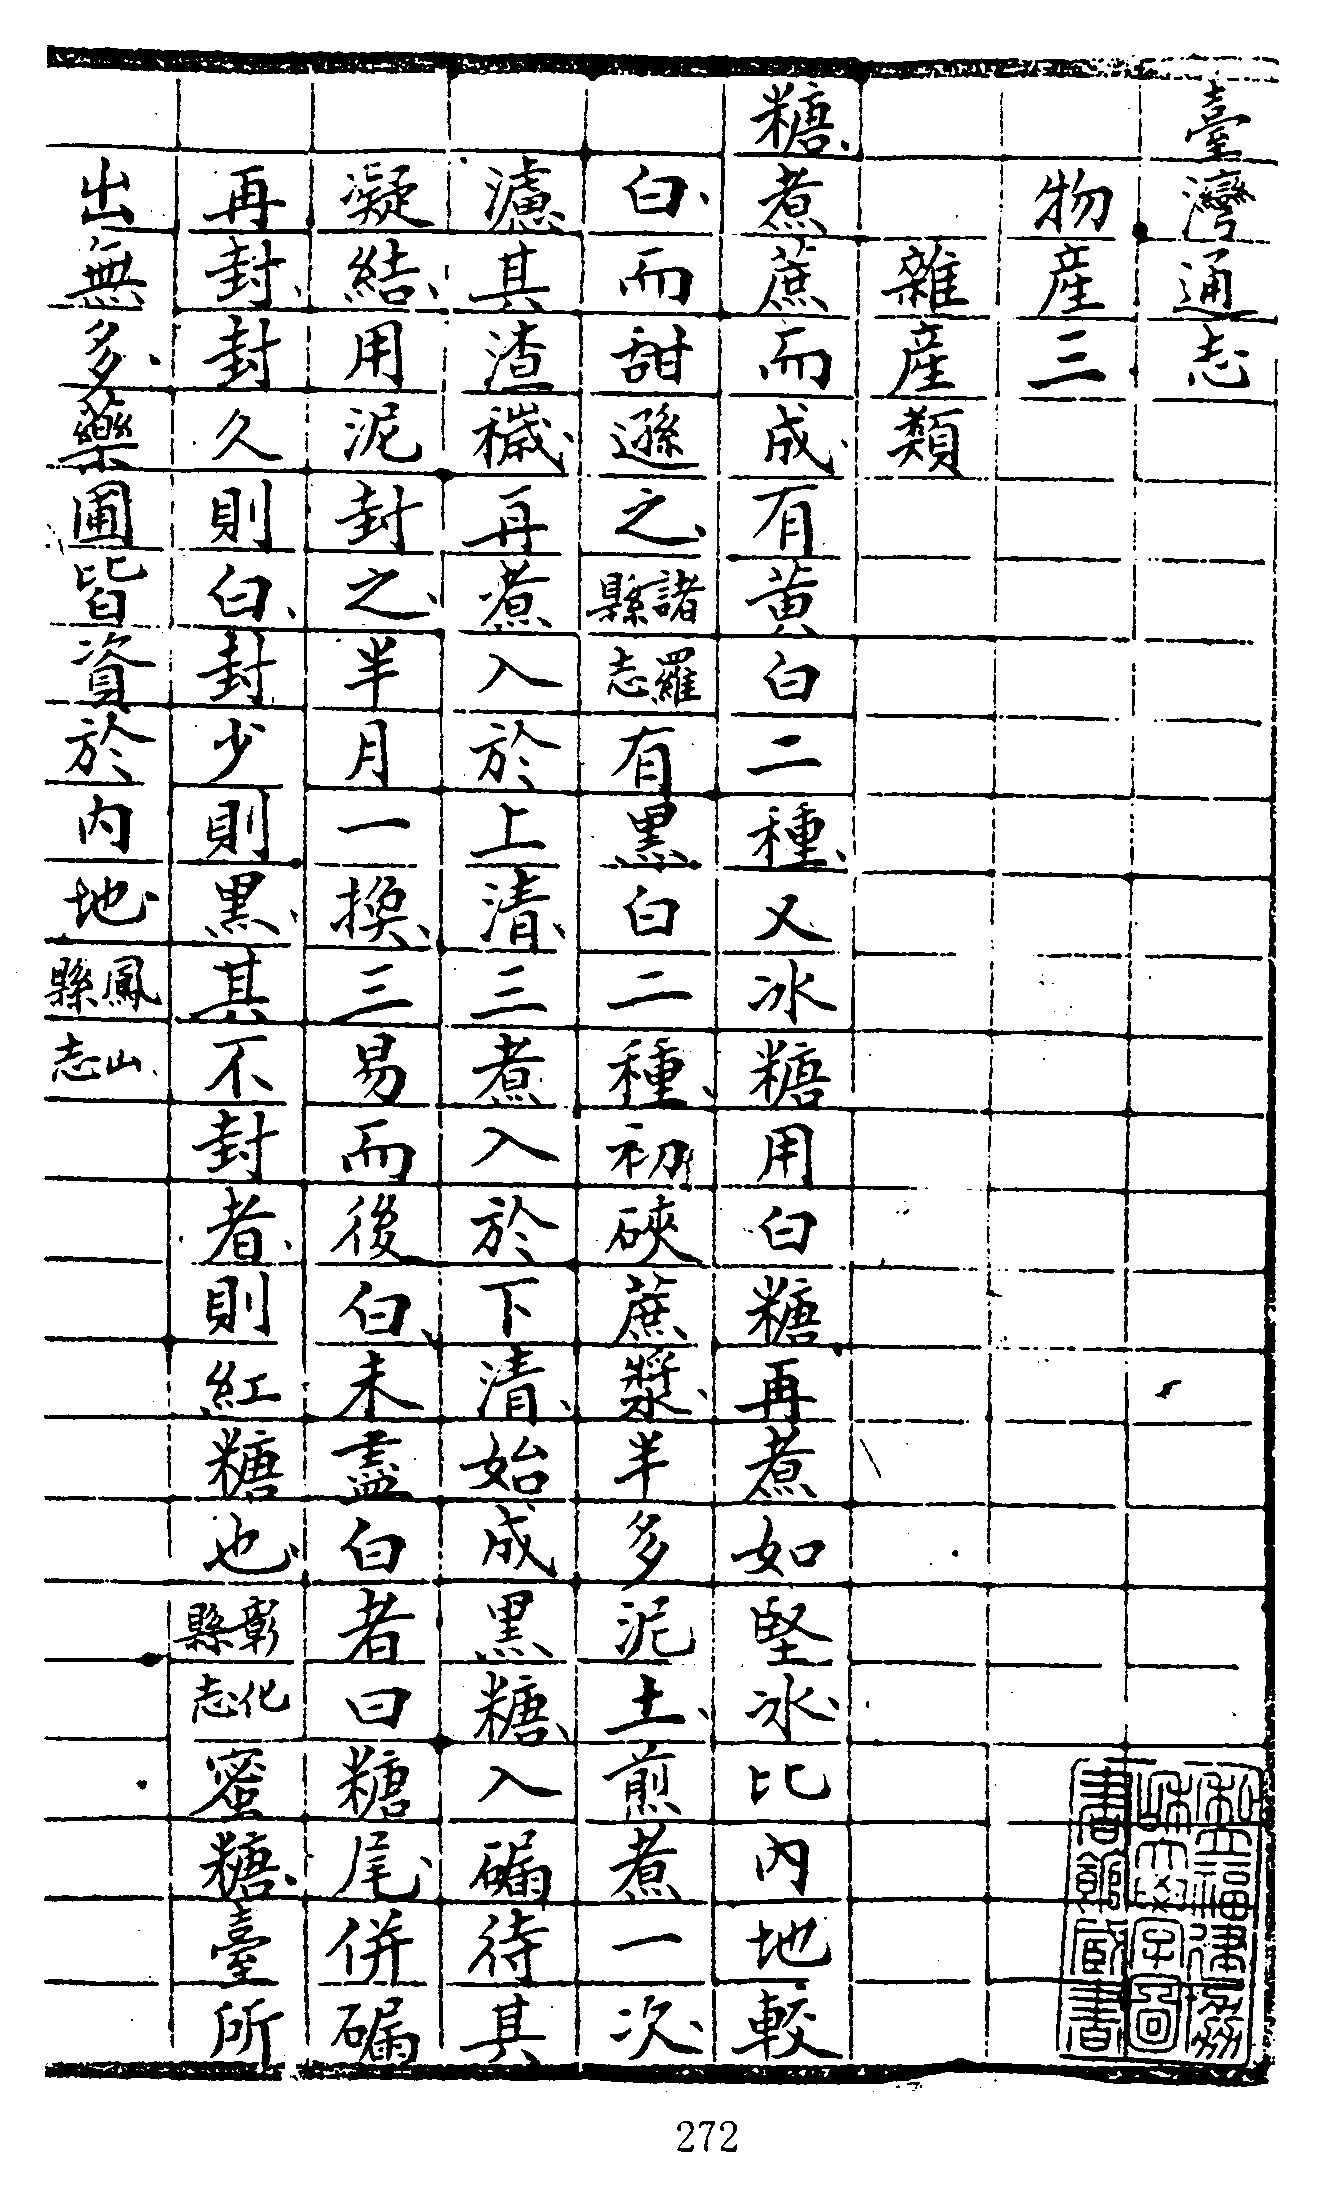 臺灣通志
物產三
雜產類
糖、煮蔗而成、有黃白二種、又冰糖用白糖再煮如堅冰、比內地較
白、而甜遜之、諸羅縣志有黑白二種、初硤蔗漿、半多泥土、煎煮一次、
濾其渣穢、再煮入於上清、三煮入於下清、始成黑糖、入𥖁待其
凝結、用泥封之、半月一換、三易而後白、未盡白者曰糖尾、併𥖁
再封、封久則白、封少則黑、其不封者、則紅糖也、彰化縣志蜜糖、臺所
出無多、藥圃皆資於內地、鳳山縣志
私立福建協
和大學圖
書館藏書
272